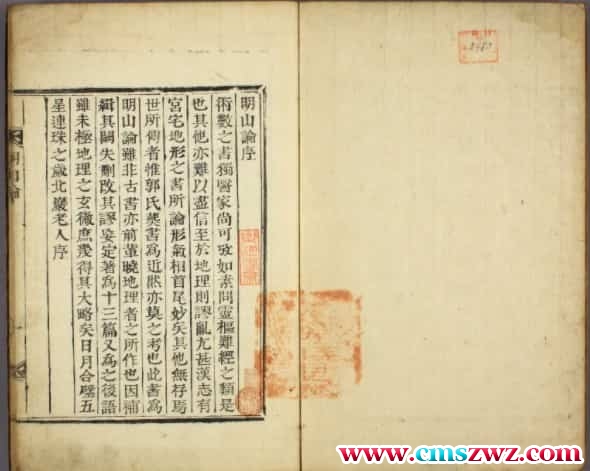 明山論序
術數之書獨醫家尚可攷如素問靈樞難經之類是
也其他亦難以盡信至於地理則謬亂尤甚漢志有
宮宅地形之書所論形氣相首尾妙矣其他無存焉
世所傳者惟郭氏葬書爲近然亦莫之考也此書爲
明山論雖非古書亦前輩曉地理者之所作也因補
緝其闕失刪改其謬妄定著爲十三篇又爲之後語
雖未極地理之玄微庶幾得其大略矣日月合璧五
星連珠之歲北巖老人序
www.cmszwz.com